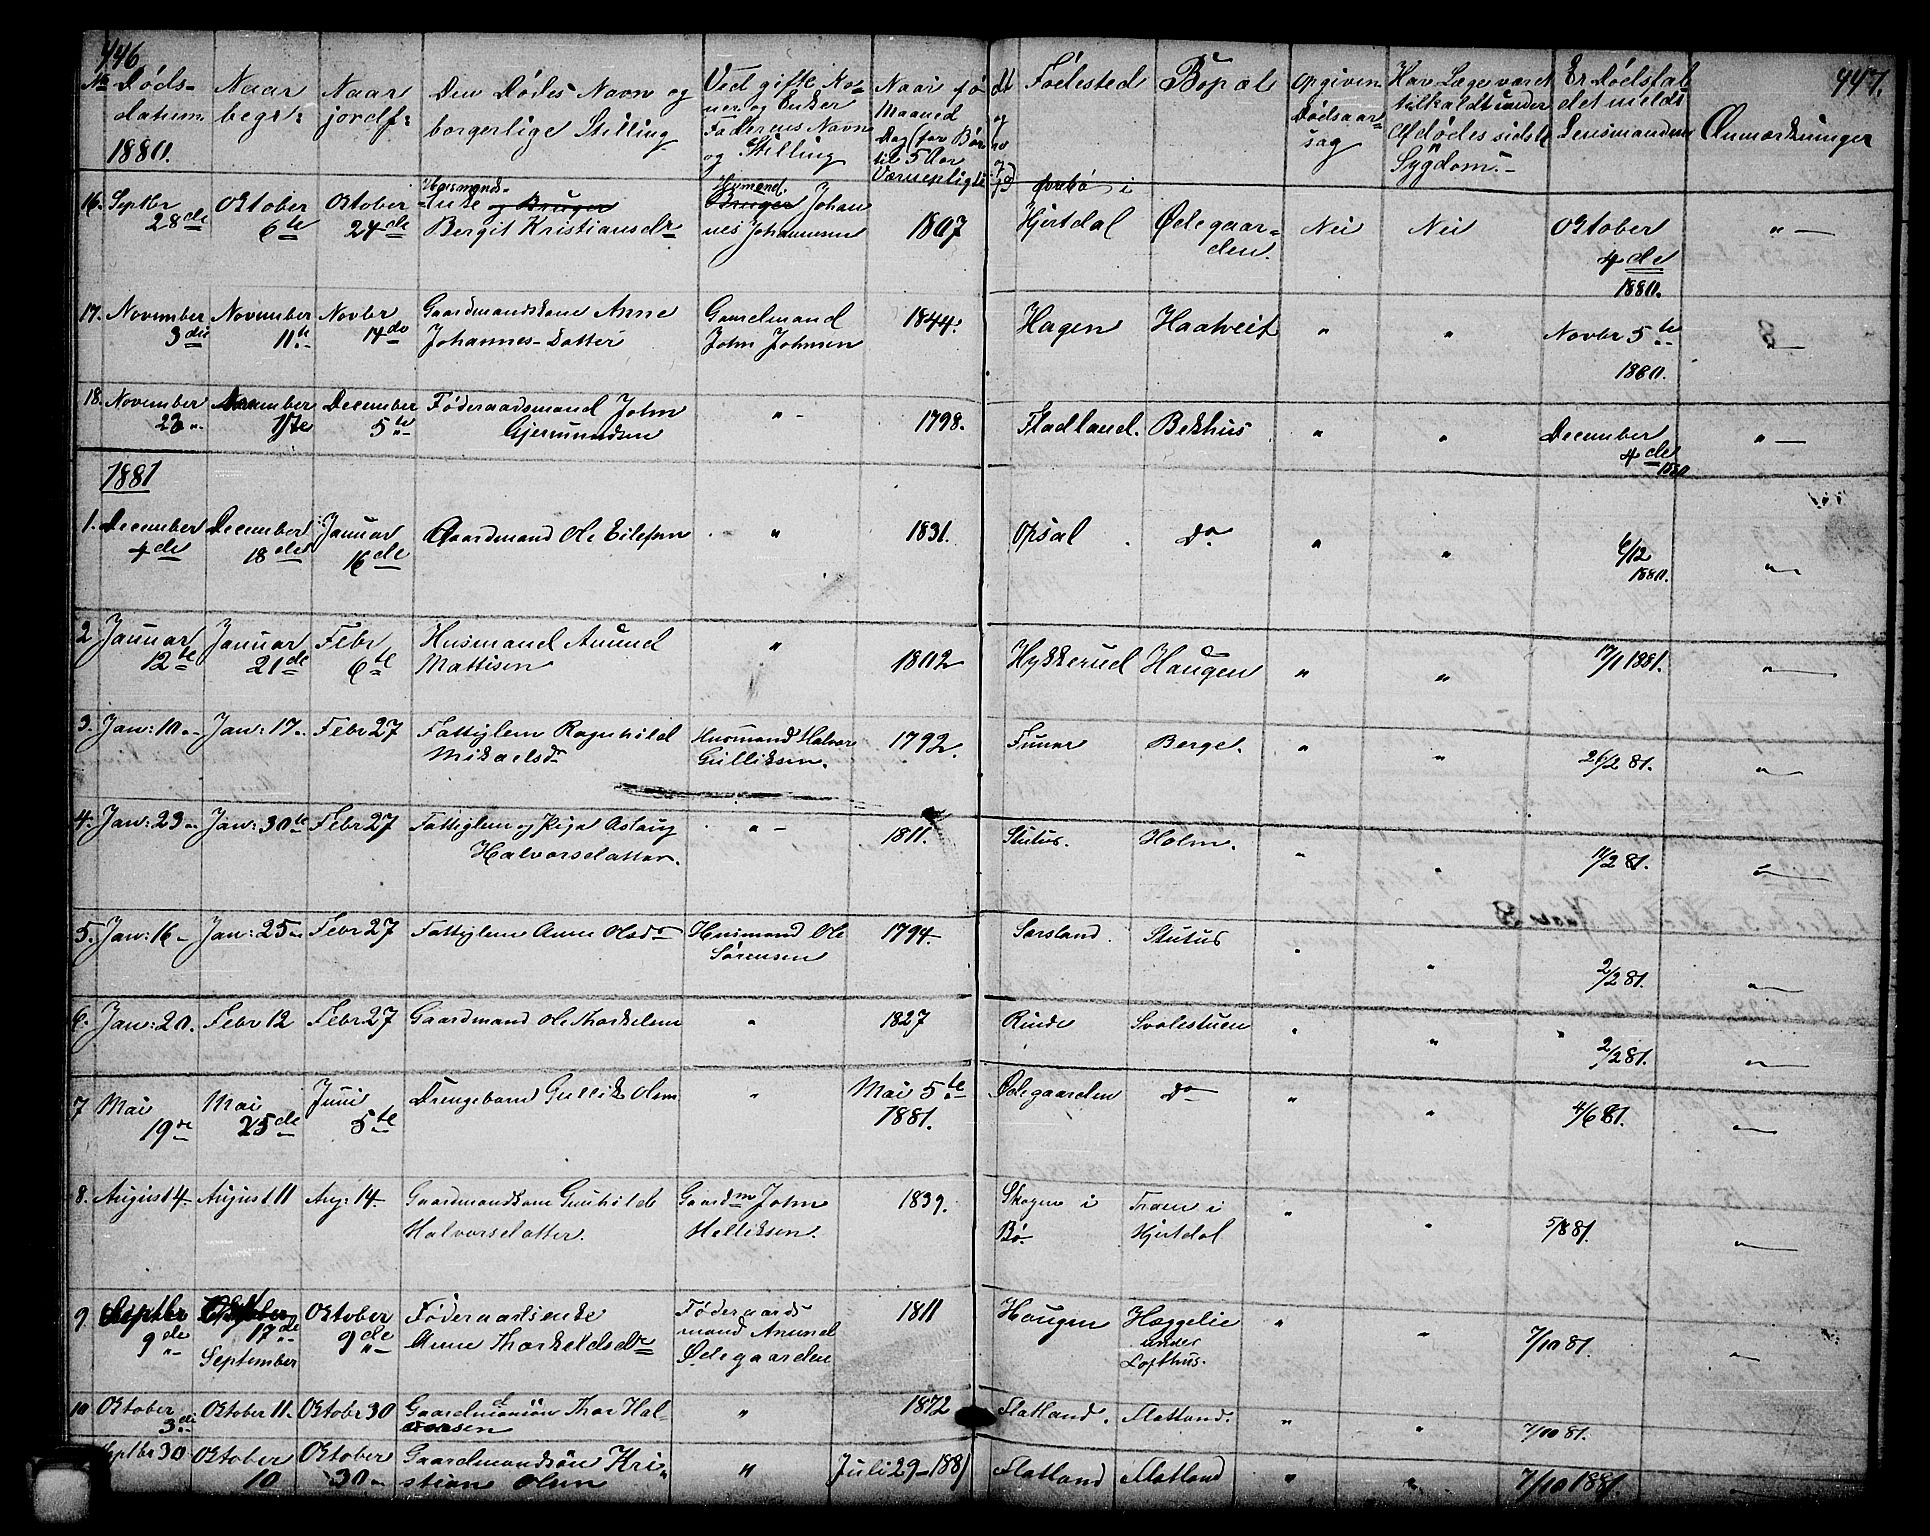 446
447.
No Døds-
datum
1880.
Naar
begr:
Naar
jordf:
Den Dødes Navn og
borgerlige Stilling
Ved gifte Ko-
ner og Enker
Faderens Navn
og Stilling
Naar fø
Maaned
Dag (for Børn
til 5 Aar
Fødested
Bopæl
Opgiven
Dødsaar-
sag
Har Læge været
tilkaldt under
Afdødes sidste
Sygdom.-
Er Dødsfal
det meldt
Lensmanden
Anmærkninger
16. Septbr
28de
Oktober
6te
Oktober
24de
Husmands-
Enke og Bruger
Bergit Kristiansdr
Husmand.
Bruger Johan
nes Johannesen
1807
i
Hjertdal
Ødegaar-
den.
Nei
Nei
Oktober
4de
1880.
" —
17. November
3die
November
11te
Novbr
14de
Gaardmandskone Anne
Johannes-Datter
Gaardmand
John Johnsen
1844.
Hagen
Haatveit
"
"
Novbr 5te
1880.
" —
18. November
23"
1ste
December
5te
Føderaadsmand John
Gjermundsen
" -
1798.
Fladland.
Bekhus
"
"
December
4de
1880
" —
1881
1. December
4de
December
18de
Januar
16de
Gaardmand Ole Eilefsen
"
1831.
Opsal
Do
"
"
6/12
1880.
" —
2 Januar
12te
Januar
21de
Febr
6te
Husmand Amund
Mattisen
"
1802
Hykkerud
Haugen
"
"
17/1 1881.
" —
3. Jan: 10
Jan: 17
Febr 27
Fattiglem Ragnhild
Mikaelsdr
Husmand Halvor
Gulliksen.
1792.
Berge.
"
"
26/2 81.
" —
4. Jan: 23
Jan: 30te
Febr 27
Fattiglem og Pige Aslaug
Halvorsdatter.
" -
1811.
Stutus.
Holm.
"
"
11/2 81.
" —
5. Jan: 16
Jan: 25
Febr 27
Fattiglem Anne Olsdr
Husmand Ole
Sørensen
1794.
Sarsland.
Stutus
"
"
2/2 81.
" —
6. Jan: 20.
Febr 12
Febr 27
Gaardmand Ole Thorkelsen
"
1827
Rinde
Svolestuen
"
"
"
2/2 81.
" —
7 Mai
19de
Mai
25de
Juni
5te
Drengebarn Gullik Olsen
"
Mai 5te
1881.
Ødegaarden
Do
"
"
4/6 81.
" —
8. August 4
August 11
Aug: 14.
Gaardmandskone Gunhild
Halvorsdatter.
Gaardm John
Helliksen.
1839.
Skogen i
Bø
Traen i
Hjertdal
"
"
5/8 81.
" —
9 Septbr
9de
17de
September
Oktober
9de
Føderaadsenke
Anne Thorkeldsdr
Føderaads
mand Amund
Ødegaarden
1811
Haugen
Hæggelie
under
Lofthus.
"
"
7/10 81.
" —
10 Oktober
3die
Oktober 11.
Oktobr 30
Gaardmandsøn Thor Hal-
vorsen
"
1872
Flatland.
Flatland.
"
"
7/10 81.
Septbr 30
Oktober
10
Oktober
30
Gaardmandsøn Kri-
stian Olsen
"
Juli 29-1881
Flatland
Flatland
"
"
7/10 1881.